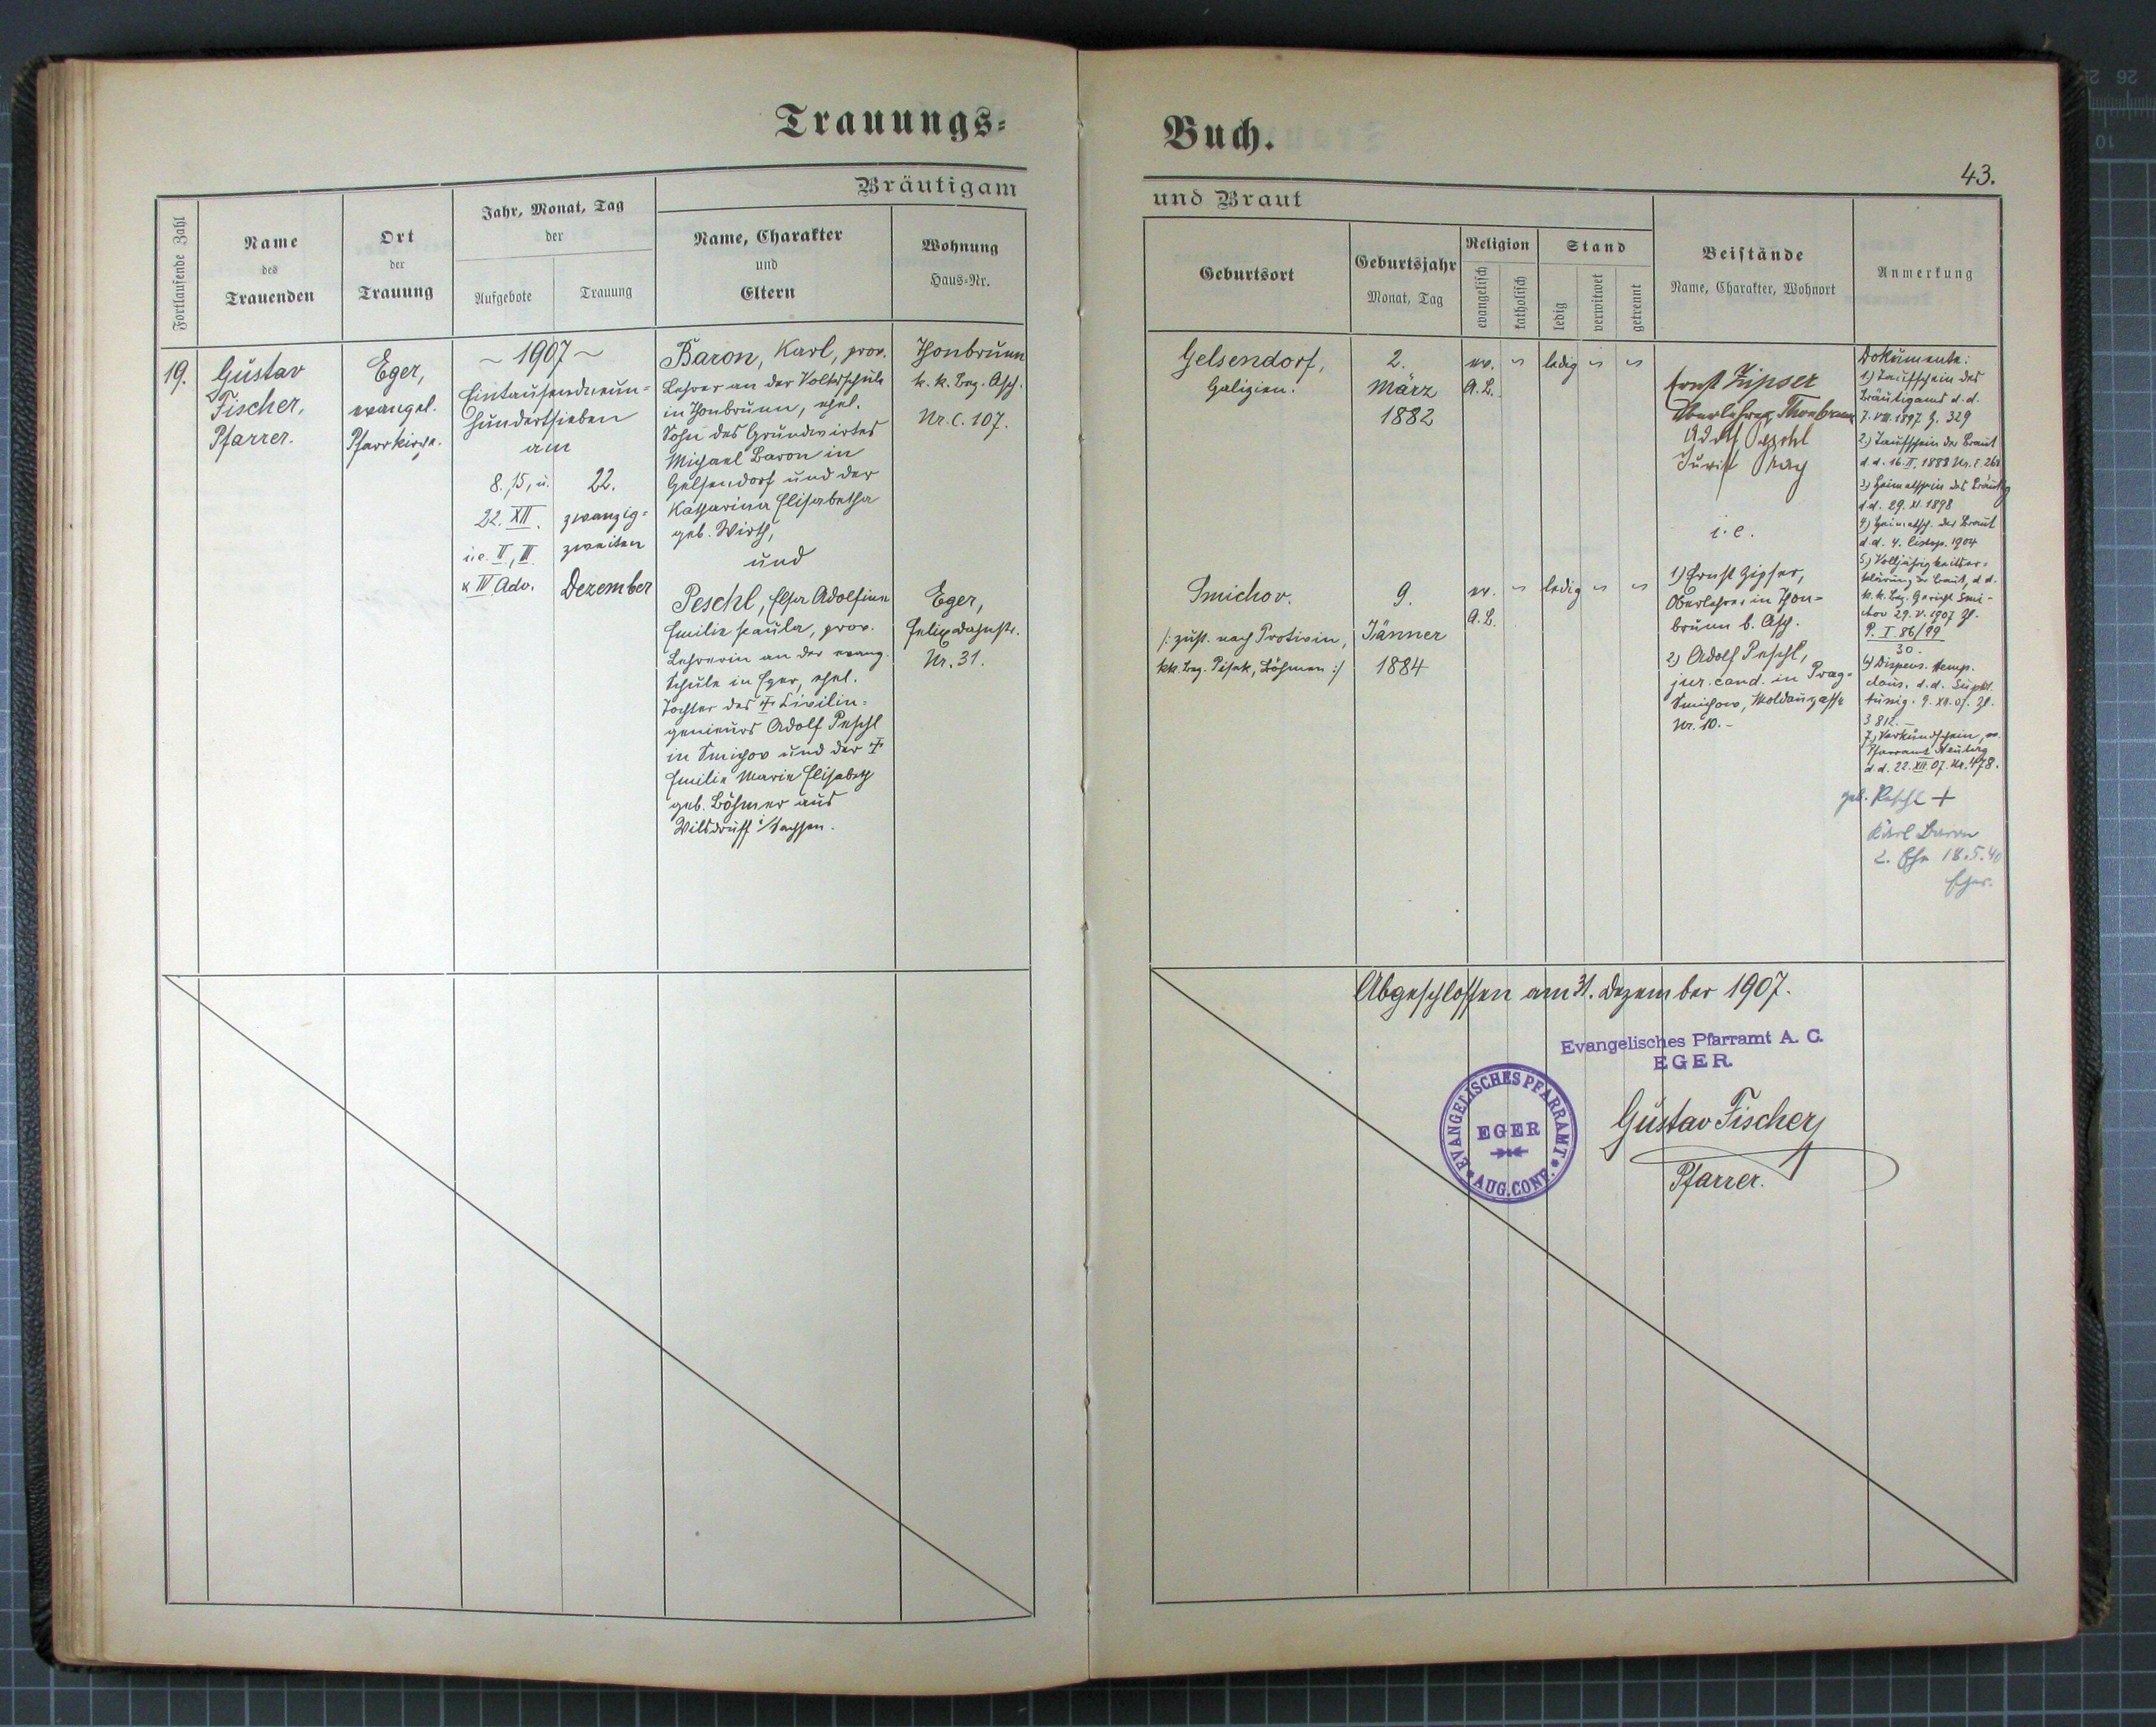 Trauungs=
Buch.
43.
Bräutigam
und Braut
Fortlaufende Zahl
Name
des
Trauenden
Ort
der
Trauung
Jahr, Monat, Tag
der
Aufgebote
Trauung
Name, Charakter
und
Eltern
Wohnung
Haus=Nr.
Geburtsort
Geburtsjahr
Monat, Tag
Religion
evangelisch
katholisch
Stand
ledig
verwitwet
getrennt
Beistände
Name, Charakter, Wohnort
Anmerkung
19.
Gustav
Fischer,
Pfarrer.
Eger,
evangel.
Pfarrkirche.
~ 1907 ~
Eintausendneun=
hundertsieben
am
8. 15, u.
22. XII.
i.e. II, III
u IV Adv.
22.
zwanzig=
zweiten
Dezember
Baron, Karl, prov.
Lehrer an der Volksschule
in Thonbrunn, ehel.
Sohn des Grundwirtes
Michael Baron in
Gelsendorf und der
Katharina Elisabetha
geb. Wirth,
und
Peschl, Elsa Adolfine
Emilie Paula, prov.
Lehrerin an der evang.
Schule in Eger, ehel.
Tochter des † Civilin=
genieurs Adolf Peschl
in Smichov und der †
Emilie Marie Elisabeth
geb. Böhmer aus
Wilsdruff i/Sachsen.
Thonbrunn
k. k. Bez. Asch.
Nr. C. 107.
Eger,
Nr. 31.
Gelsendorf,
Galizien.
2.
März
1882
ev.
A.B.
ledig
Smichov.
/: zust. nach Protivin,
kk. Bez. Pisek, Böhmen :/
9.
Jänner
1884
ev.
A.B.
ledig
Ernst Zipser
Oberlehrer Thonbrunn
Adolf Peschl
Jurist Prag
i. e.
1) Ernst Zipser,
Oberlehrer in Thon=
brunn b. Asch.
2) Adolf Peschl,
jur. cand. in Prag=
Smichow, Moldaugasse
Nr. 10.-
Dokumente:
1) Taufschein des
Bräutigams d. d.
7. VIII. 1897 Z. 329
2) Taufschein der Braut
3) Heimatschein des Bräutig
d.d. 29. XI. 1898
4) Heimatsch. der Braut
d.d. 4. Listop. 1904
5) Volljährigkeitser=
klärung der Braut, d. d.
k. k. Bez. Gericht Smi-
chov 29. V. 1907 Zl.
P. I 86/99
30.
6) Dispens. temp.
3812.-
7) Verkündschein, ev.
Pfarramt Neuberg
d.d. 22. XII. 07. Nr. 478.
geb. Peschl +
Karl Baron
2. Ehe 18.5.40
Eger.
Abgeschlossen am 31. Dezember 1907.
Evangelisches Pfarramt A. C.
EGER
EVANGELISCHES PFARRAMT
EGER
AUG. CONF.
Gustav Fischer
Pfarrer.